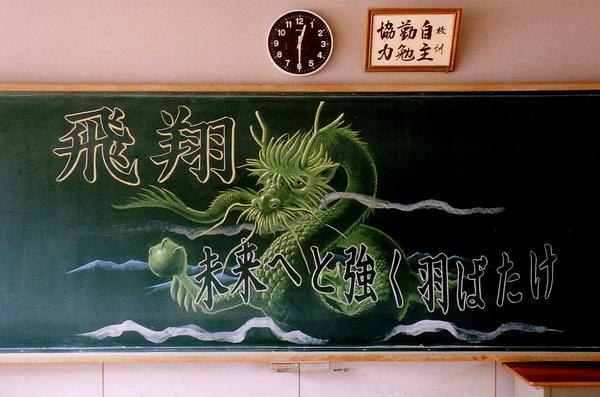 校訓
自主
勤勉
協力
飛翔
未来へと強く羽ばたけ
12
1
2
3
4
5
6
7
8
9
10
11